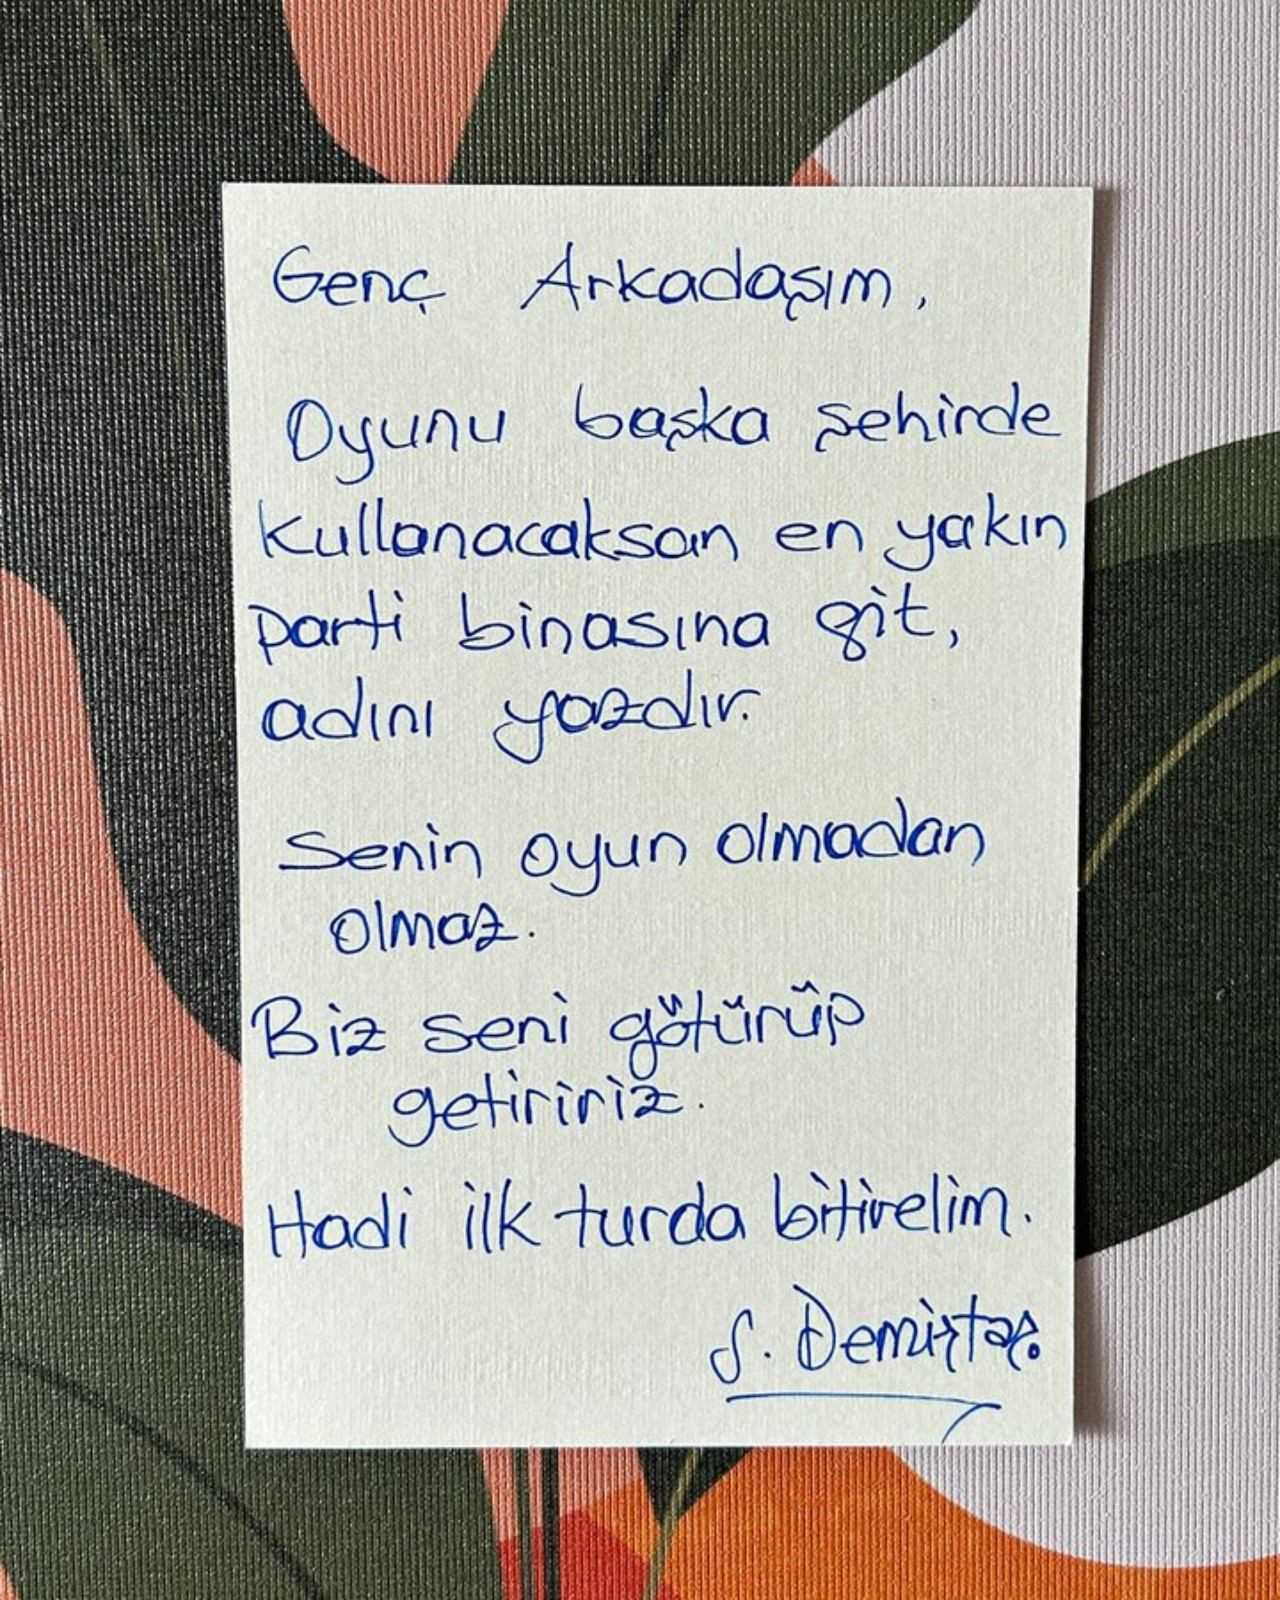 Genç Arkadaşım,
Oyunu başka şehirde
kullanacaksan en yakın
parti binasına git,
adını yazdır.
Senin oyun olmadan
olmaz.
Biz seni götürüp
getiririz.
Hadi ilk turda bitirelim.
S. Demirtaş